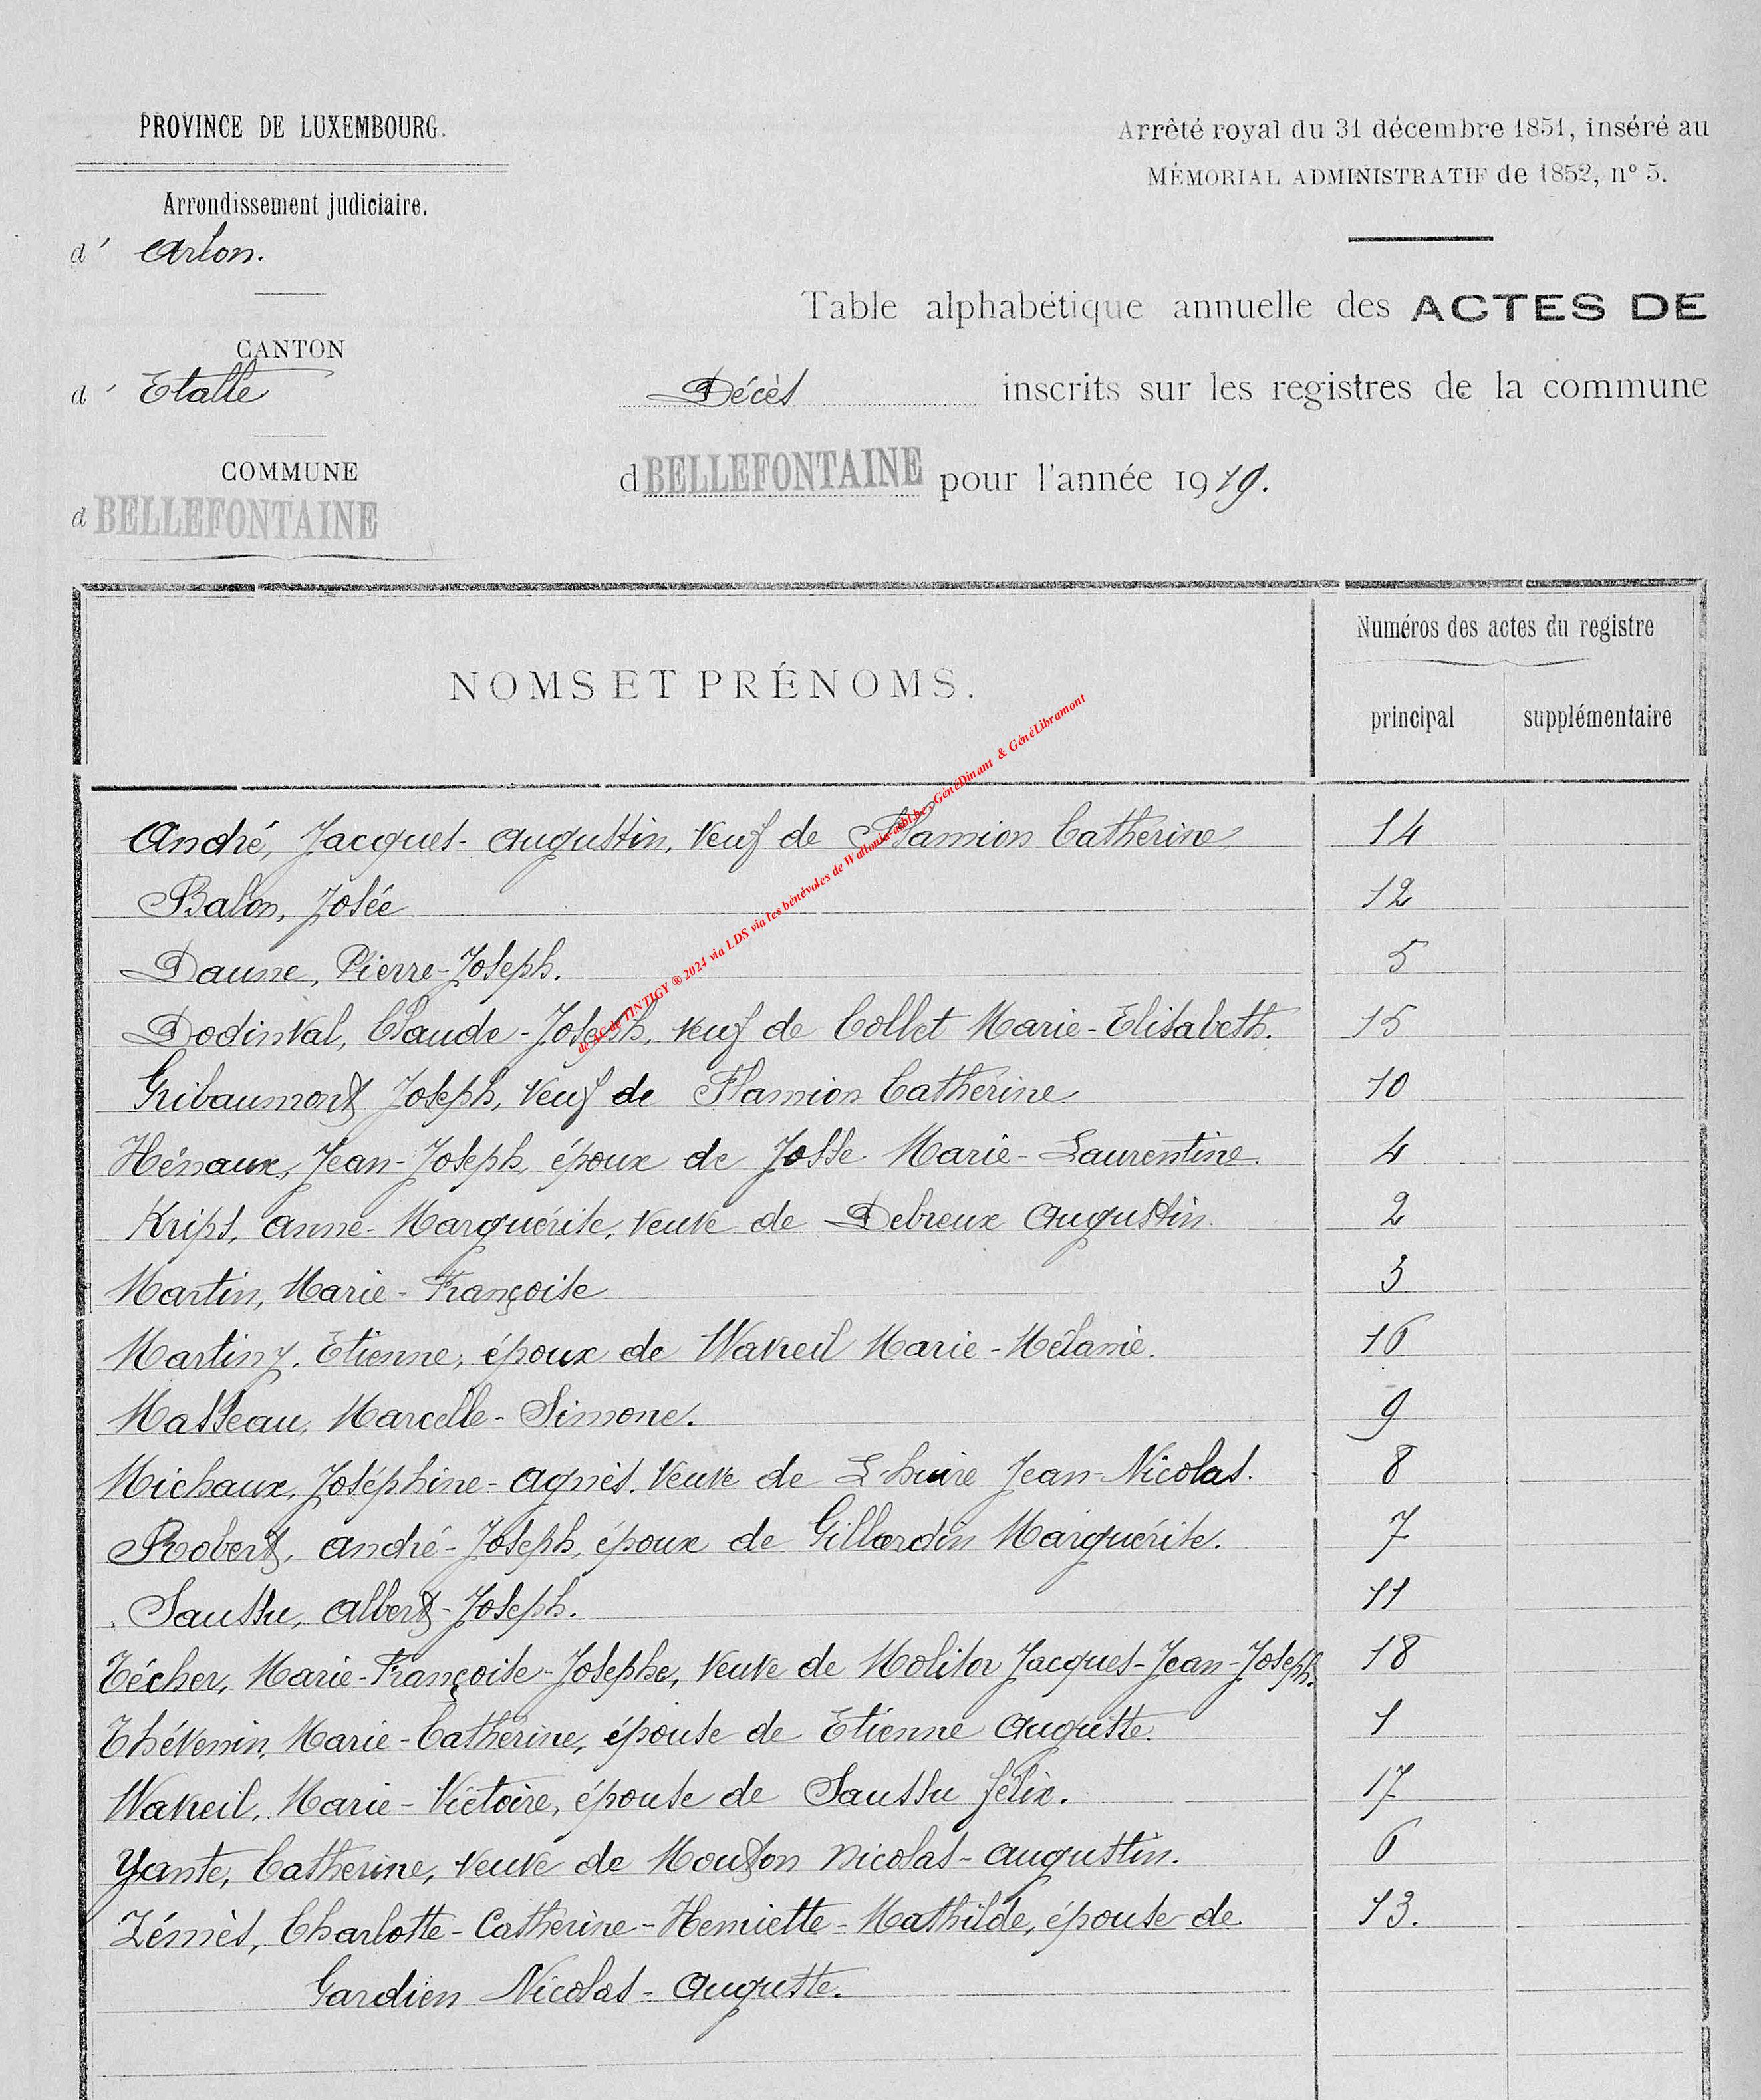 PROVINCE DE LUXEMBOURG.
Arrondissement judiciaire.
d' Arlon.
CANTON
d' Etalle
COMMUNE
d BELLEFONTAINE
Arrêté royal du 31 décembre 1851, inséré au
MÉMORIAL ADMINISTRATIF de 1852, n° 5.
Table alphabétique annuelle des ACTES DE
Décès inscrits sur les registres de la commune
d BELLEFONTAINE pour l'année 1919.
NOMS ET PRÉNOMS.
Numéros des actes du registre
principal supplémentaire
de AC de TINTIGY ® 2024 via LDS via les bénévoles de Wallonia-asbl.be - GénéDinant & GénéLibramont
André, Jacques-Augustin, veuf de Flamion Catherine 14
Balon, Josée 12
Daune, Pierre-Joseph. 5
Dodinval, Claude-Joseph, veuf de Collet Marie-Elisabeth. 15
Gribaumont Joseph, veuf de Flamion Catherine 10
Hénaux, Jean-Joseph, époux de Josse Marie-Laurentine. 4
Krips, Anne-Marguérite, veuve de Debreux Augustin. 2
Martin, Marie-Françoise 3
Martiny, Etienne, époux de Wavreil Marie-Mélanie. 16
Masseau, Marcelle-Simone. 9
Michaux, Joséphine-Agnès, veuve de L'huire Jean-Nicolas. 8
Robert, André-Joseph, époux de Gillardin Marguérite. 7
Saussu, Albert-Joseph. 11
Técher, Marie-Françoise-Josephe, veuve de Molitor Jacques-Jean-Joseph. 18
Thévenin, Marie-Catherine, épouse de Etienne Auguste. 1
Wavreil, Marie-Victoire, épouse de Saussu Félix. 17
Yante, Catherine, veuve de Mouton Nicolas-Augustin. 6
Zémès, Charlotte-Catherine-Henriette-Mathilde, épouse de 13.
Gardien Nicolas-Auguste.